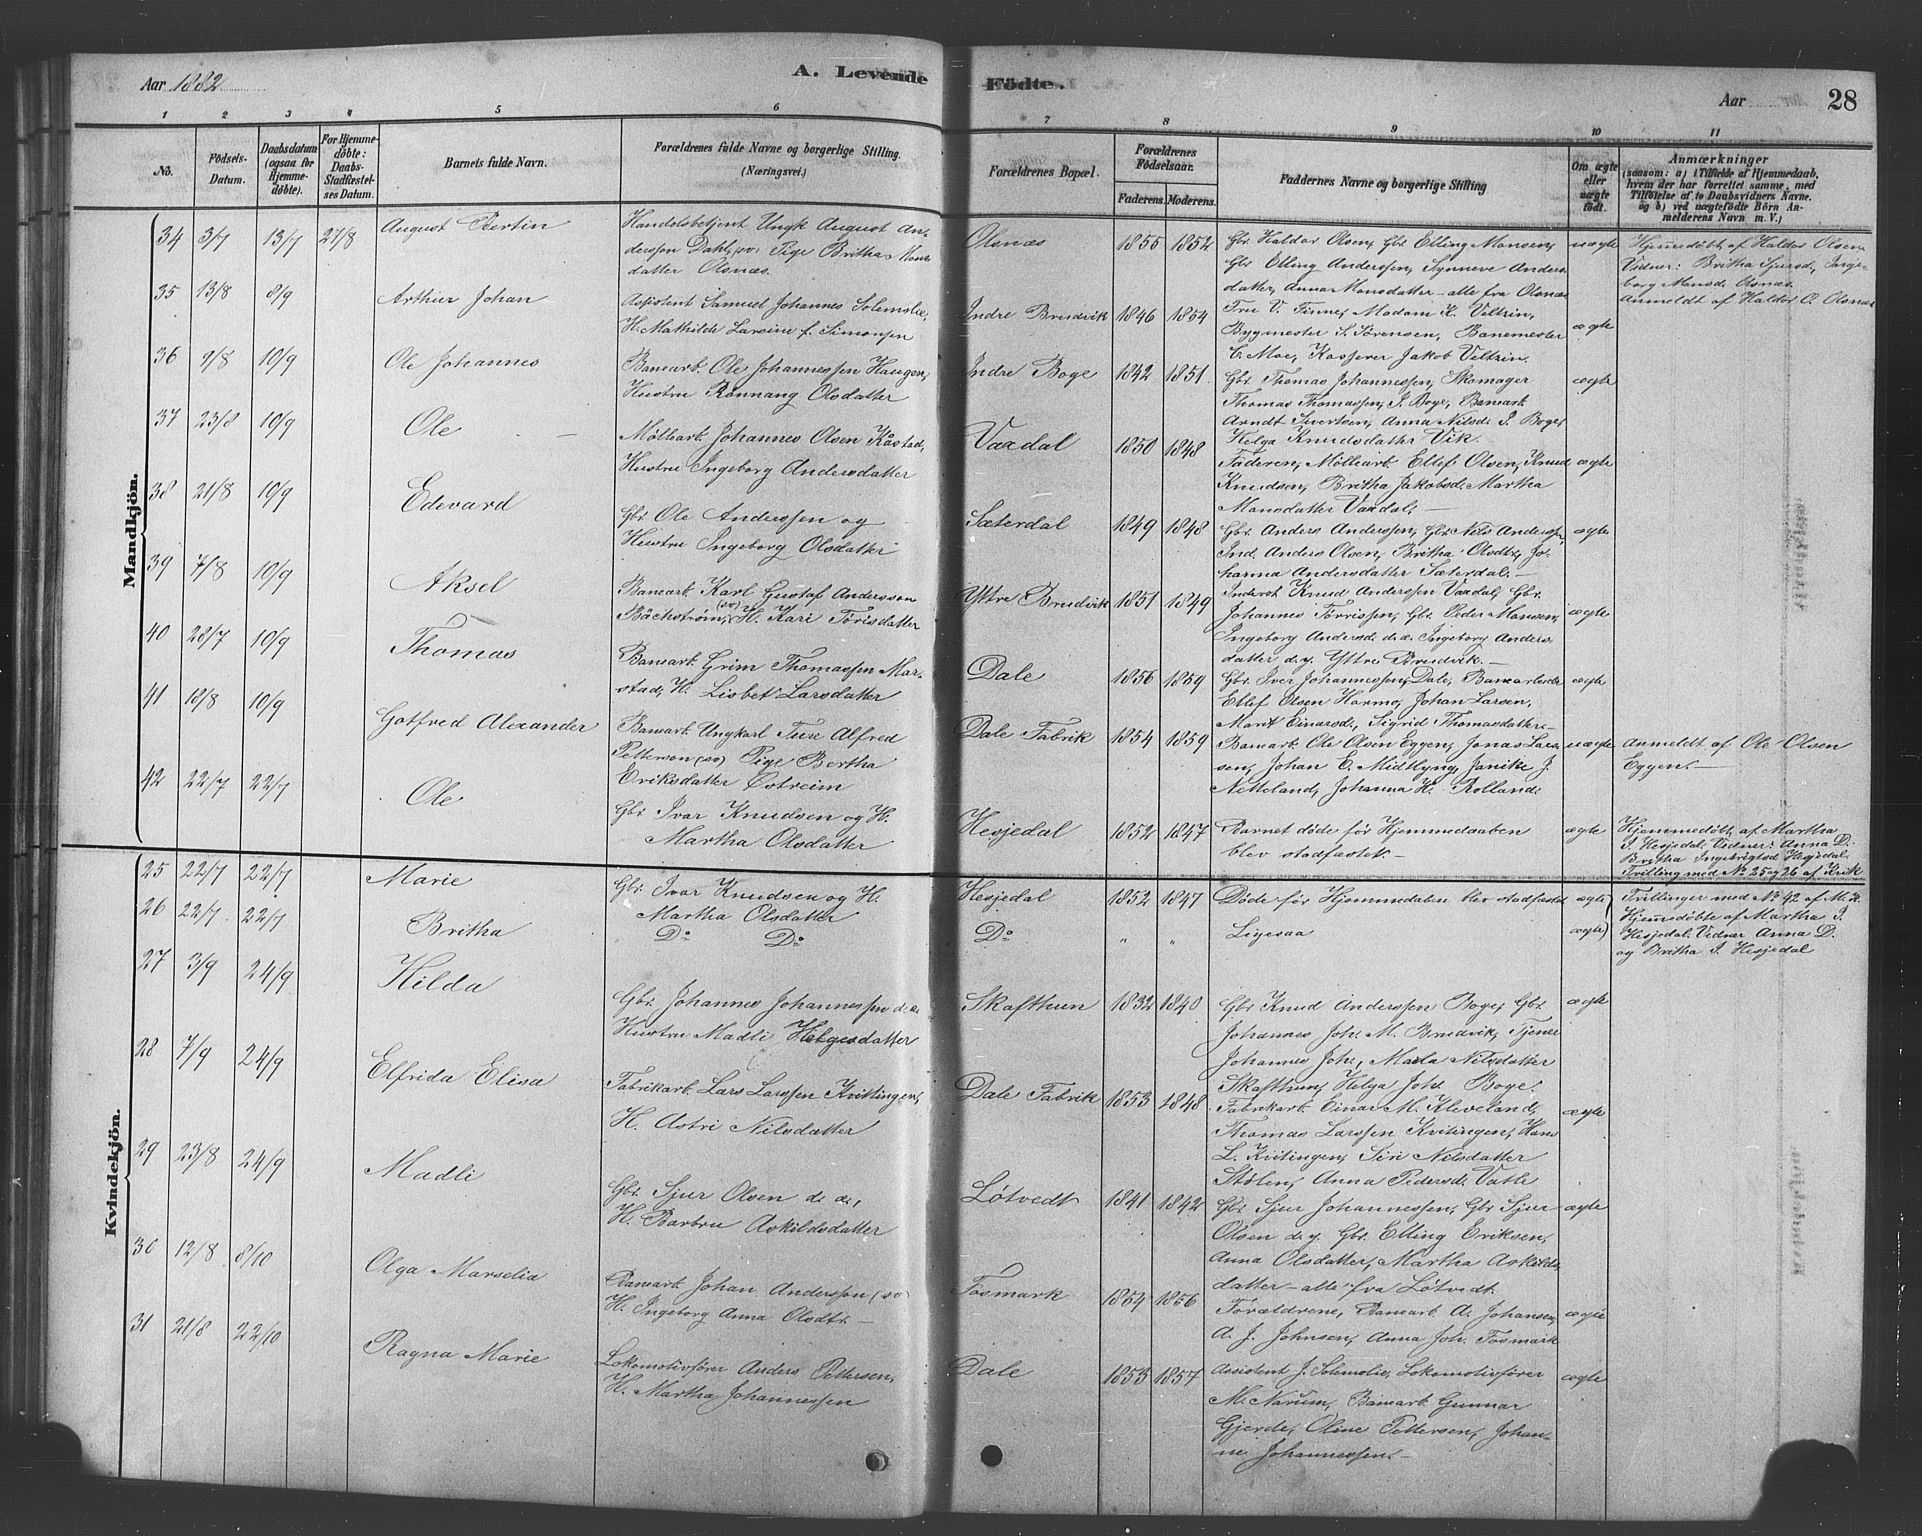 Aar 1882
A. Levende
Födte.
Aar
28
1 2 3 4 5 6 7 8 9 10 11
No.
Födsels-Datum.
Daabsdatum (ogsaa for Hjemmedöbte).
For Hjemmedöbte: Daabs-Stadfæstelses Datum.
Barnets fulde Navn.
Forældrenes fulde Navne og borgerlige Stilling. (Næringsvei.)
Forældrenes Bopæl.
Forældrenes Födselsaar.
Faderens. Moderens.
Faddernes Navne og borgerlige Stilling
Om ægte eller uægte födt.
Anmærkninger
(saasom: a) i Tilfælde af Hjemmedaab, hvem der har forrettet samme, med Tilföielse af to Daabsvidners Navne. og b) ved uægtefödte Börn Anmelderens Navn m. V.)
Mandkjön.
34 3/7 13/7 27/8 August Bertin
Handelsbetjent Ungk August An-
derssen Dahl, (so) Pige Britha Mons
datter Olsnæs.
Olsnæs 1855 1852
Gbr. Haldor Olsen, Gbr. Elling Monsen,
Gbr Elling Anderssen, Synneve Anders
datter, Anna Monsdatter – alle fra Olsnæs
uægte
Hjemmedøbt af Haldor Olsen
Vidner: Britha Sjursd, Inge-
borg Monsd. Olsnæs.
Anmeldt af Haldor O. Olsnæs
35 13/8 8/9 Arthur Johan
Assistent Samuel Johannes Solemslie,
H. Mathilde Larsine f. Simonsen
Indre Bruvik 1846 1854
Fru V. Finne, Madam K. Veltzin,
Bygmester S. Sørensen, Banemester
C. Moe, Kasserer Jakob Veltzin.
ægte
36 9/8 10/9 Ole Johannes
Banearb. Ole Johannessen Haugen,
Hustru Rønnaug Olsdatter
Indre Boge 1842 1851
Gbr. Thomas Johannessen, Skomager
Thomas Thomassen, I. Boge, Banearb.
Arndt Sivertsen, Anna Nilsd. I. Boge,
Helga Knudsdatter Vik.
ægte
37 23/8 10/9 Ole
Møllearb. Johannes Olsen Kåstad,
Hustru Ingeborg Andersdatter
Vaxdal 1850 1848
Faderen, Møllearb. Ellef Olsen, Knud
Knudsen, Britha Jakobsd. Martha
Monsdatter Vaxdal. –
ægte
38 21/8 10/9 Edevard
Gbr. Ole Anderssen og
Hustru Ingeborg Olsdatter
Sæterdal 1849 1848
Gbr. Anders Anderssen, Gbr. Nils Anderssen,
Ind. Anders Olsen, Britha Olsdtr, Jo-
hanna Andersdatter Sæterdal. –
ægte
39 7/8 10/9 Aksel
Banearb. Karl Gustaf Andersson
Bäckstrøm, (so) H. Kari Torisdatter
Yttre Bruvik 1851 1849
Inderst Knud Anderssen Vaxdal, Gbr.
Johannes Tørrissen, Gbr. Peder Monsen,
Ingeborg Andersd. d.æ. Ingeborg Anders-
datter d.y. Yttre Bruvik. –
ægte
40 28/7 10/9 Thomas
Banearb. Grim Thomassen Mar-
stad, H. Lisbet Larsdatter
Dale 1856 1859
Gbr. Iver Johannessen, Dale, Banearbeider
Ellef Olsen Harmo, Johan Larsen,
Marit Einarsd., Sigrid Thomasdatter –
ægte
41 18/8 10/9 Gotfred Alexander
Banearb. Ungkarl Ture Alfred
Petterson (so) Pige Bertha
Eriksdatter Østreim
Dale Fabrik 1854 1859
Banearb. Ole Olsen Eggen, Jonas Lars-
sen, Johan E. Midtlyng, Janike J.
Netteland, Johanna H. Rolland.
uægte
Anmeldt af Ole Olsen
Eggen. –
42 22/7 22/7 Ole
Gbr. Ivar Knudsen og H.
Martha Olsdatter
Hesjedal 1852 1847
Barnet døde før Hjemmedaaben
blev stadfæstet. –
ægte
Hjemmedøbt af Martha
I. Hesjedal. Vidner: Anna D.
Britha Ingebrigtsd Hesjedal.
Trilling med No 25 og 26 af Kvik
Kvindekjön.
25 22/7 22/7 Marie
Gbr. Ivar Knudsen og H.
Martha Olsdatter
Hesjedal 1852 1847
Døde før Hjemmedaaben blev stadfæstet
ægte
Trillinger med No 42 af M. K.
Hjemmedøbte af Martha I.
Hesjedal. Vidner Anna D.
og Britha I. Hesjedal
26 22/7 22/7 Britha
Do Do
Do " "
Ligesaa
ægte
27 3/9 24/9 Hilda
Gbr. Johannes Johannessen d. æ.
Hustru Madli Helgesdatter
Skafthun 1832 1840
Gbr Knud Anderssen Boge, Gbr.
Johannes Joh. M. Bruvik, Tjener
Johannes Joh., Marta Nilsdatter
Skafthun, Helga Johs. Boge.
ægte
28 7/9 24/9 Elfrida Elisa
Fabrikarb. Lars Larssen Kvittingen,
H. Astri Nilsdatter
Dale Fabrik 1853 1848
Fabrikarb. Einar M. Kleveland,
Thomas Larssen Kvitingen, Hans
L. Kvitingen, Siri Nilsdatter
Stølen, Anna Pedersd. Vatle
ægte
29 23/8 24/9 Madli
Gbr. Sjur Olsen d. æ.,
H. Barbru Askildsdatter
Løtvedt 1841 1842
Gbr. Sjur Johannessen, Gbr Sjur
Olsen d. y. Gbr. Elling Eriksen,
Anna Olsdatter, Martha Askilds-
datter – alle fra Løtvedt.
ægte
30 12/8 8/10 Olga Marselia
Banearb. Johan Anderssen (so)
H. Ingeborg Anna Olsdtr. –
Fosmark 1854 1856
Forældrene, Banearb. A. Johansen,
A. J. Johnsen, Anna Joh. Fosmark
ægte
31 21/8 22/10 Ragna Marie
Lokomotivfører Anders Pettersen,
H. Martha Johannessen
Dale 1853 1857
Assistent J. Solemslie, Lokomotivfører
M. Narum, Banearb. Gunnar
Gjerde, Oline Pettersen, Johan-
ne Johannessen. –
ægte